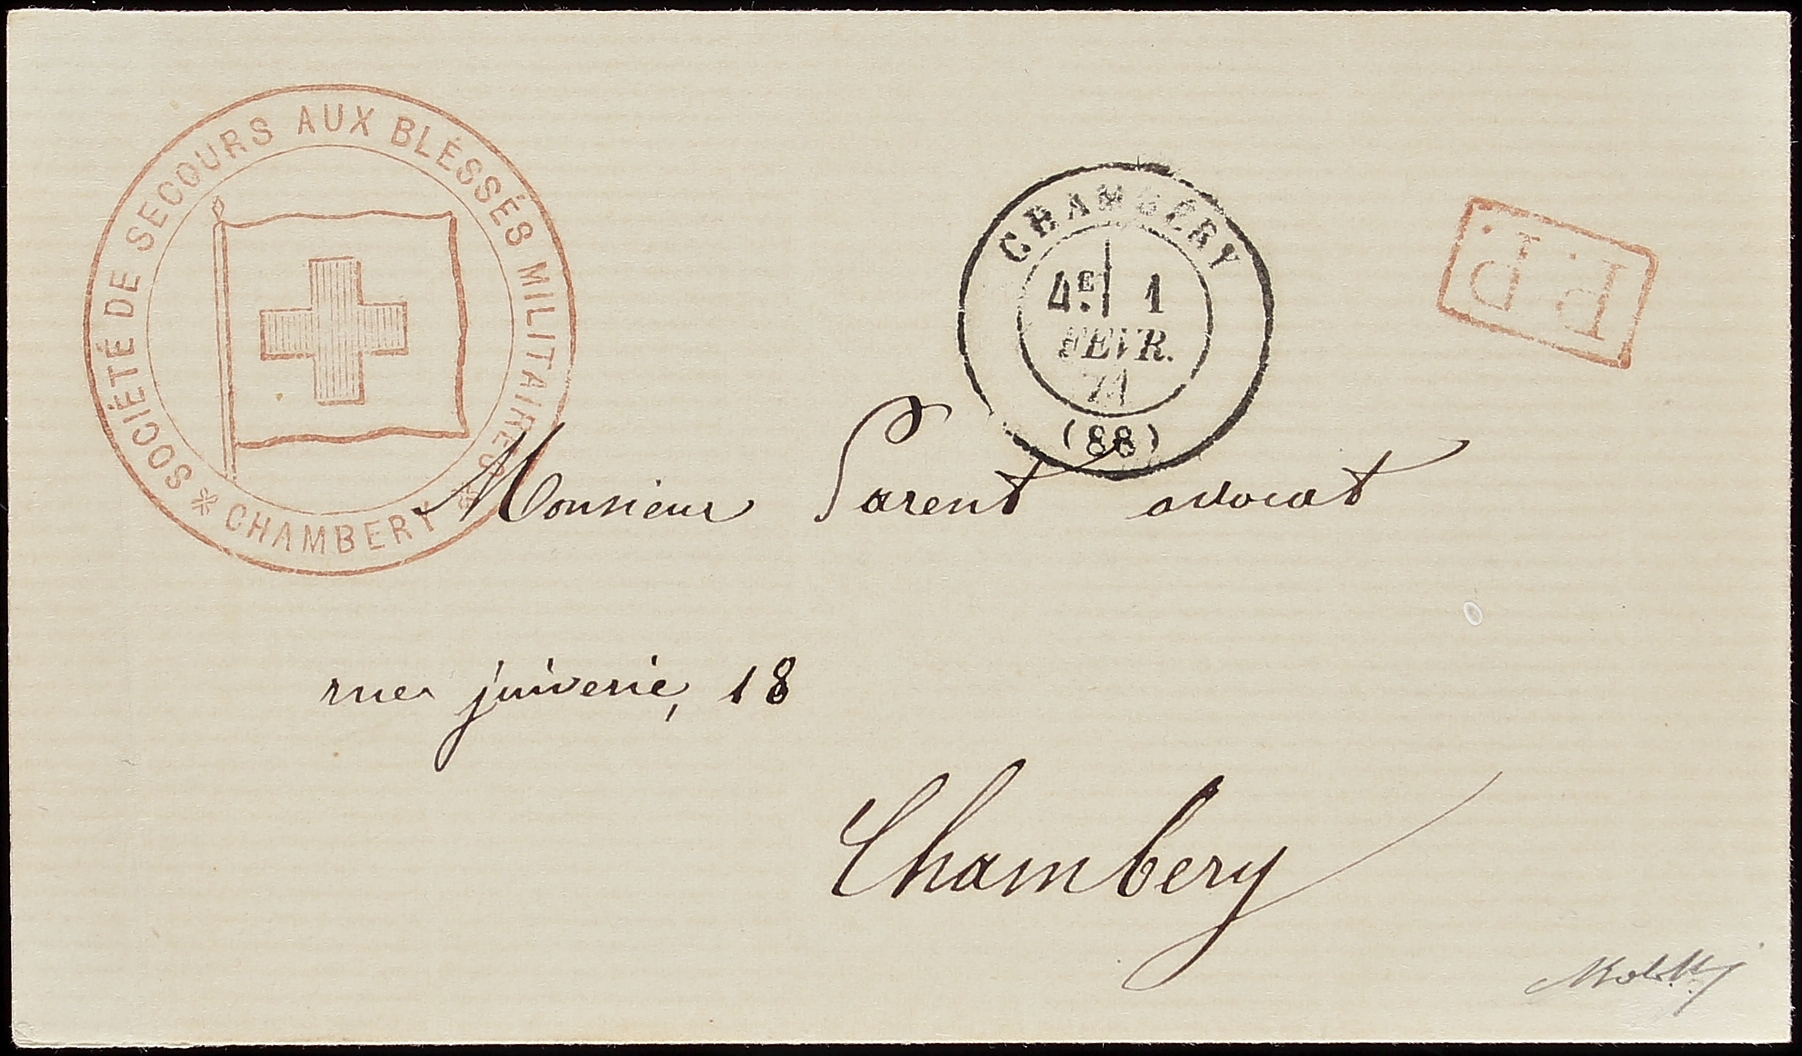 SOCIÉTÉ DE SECOURS AUX BLÉSSÉS MILITAIRES
* CHAMBERY *
CHAMBÉRY
4E 1
FEVR.
71
(88)
P.P.
Monsieur Parent avocat
rue juiverie, 18
Chambery